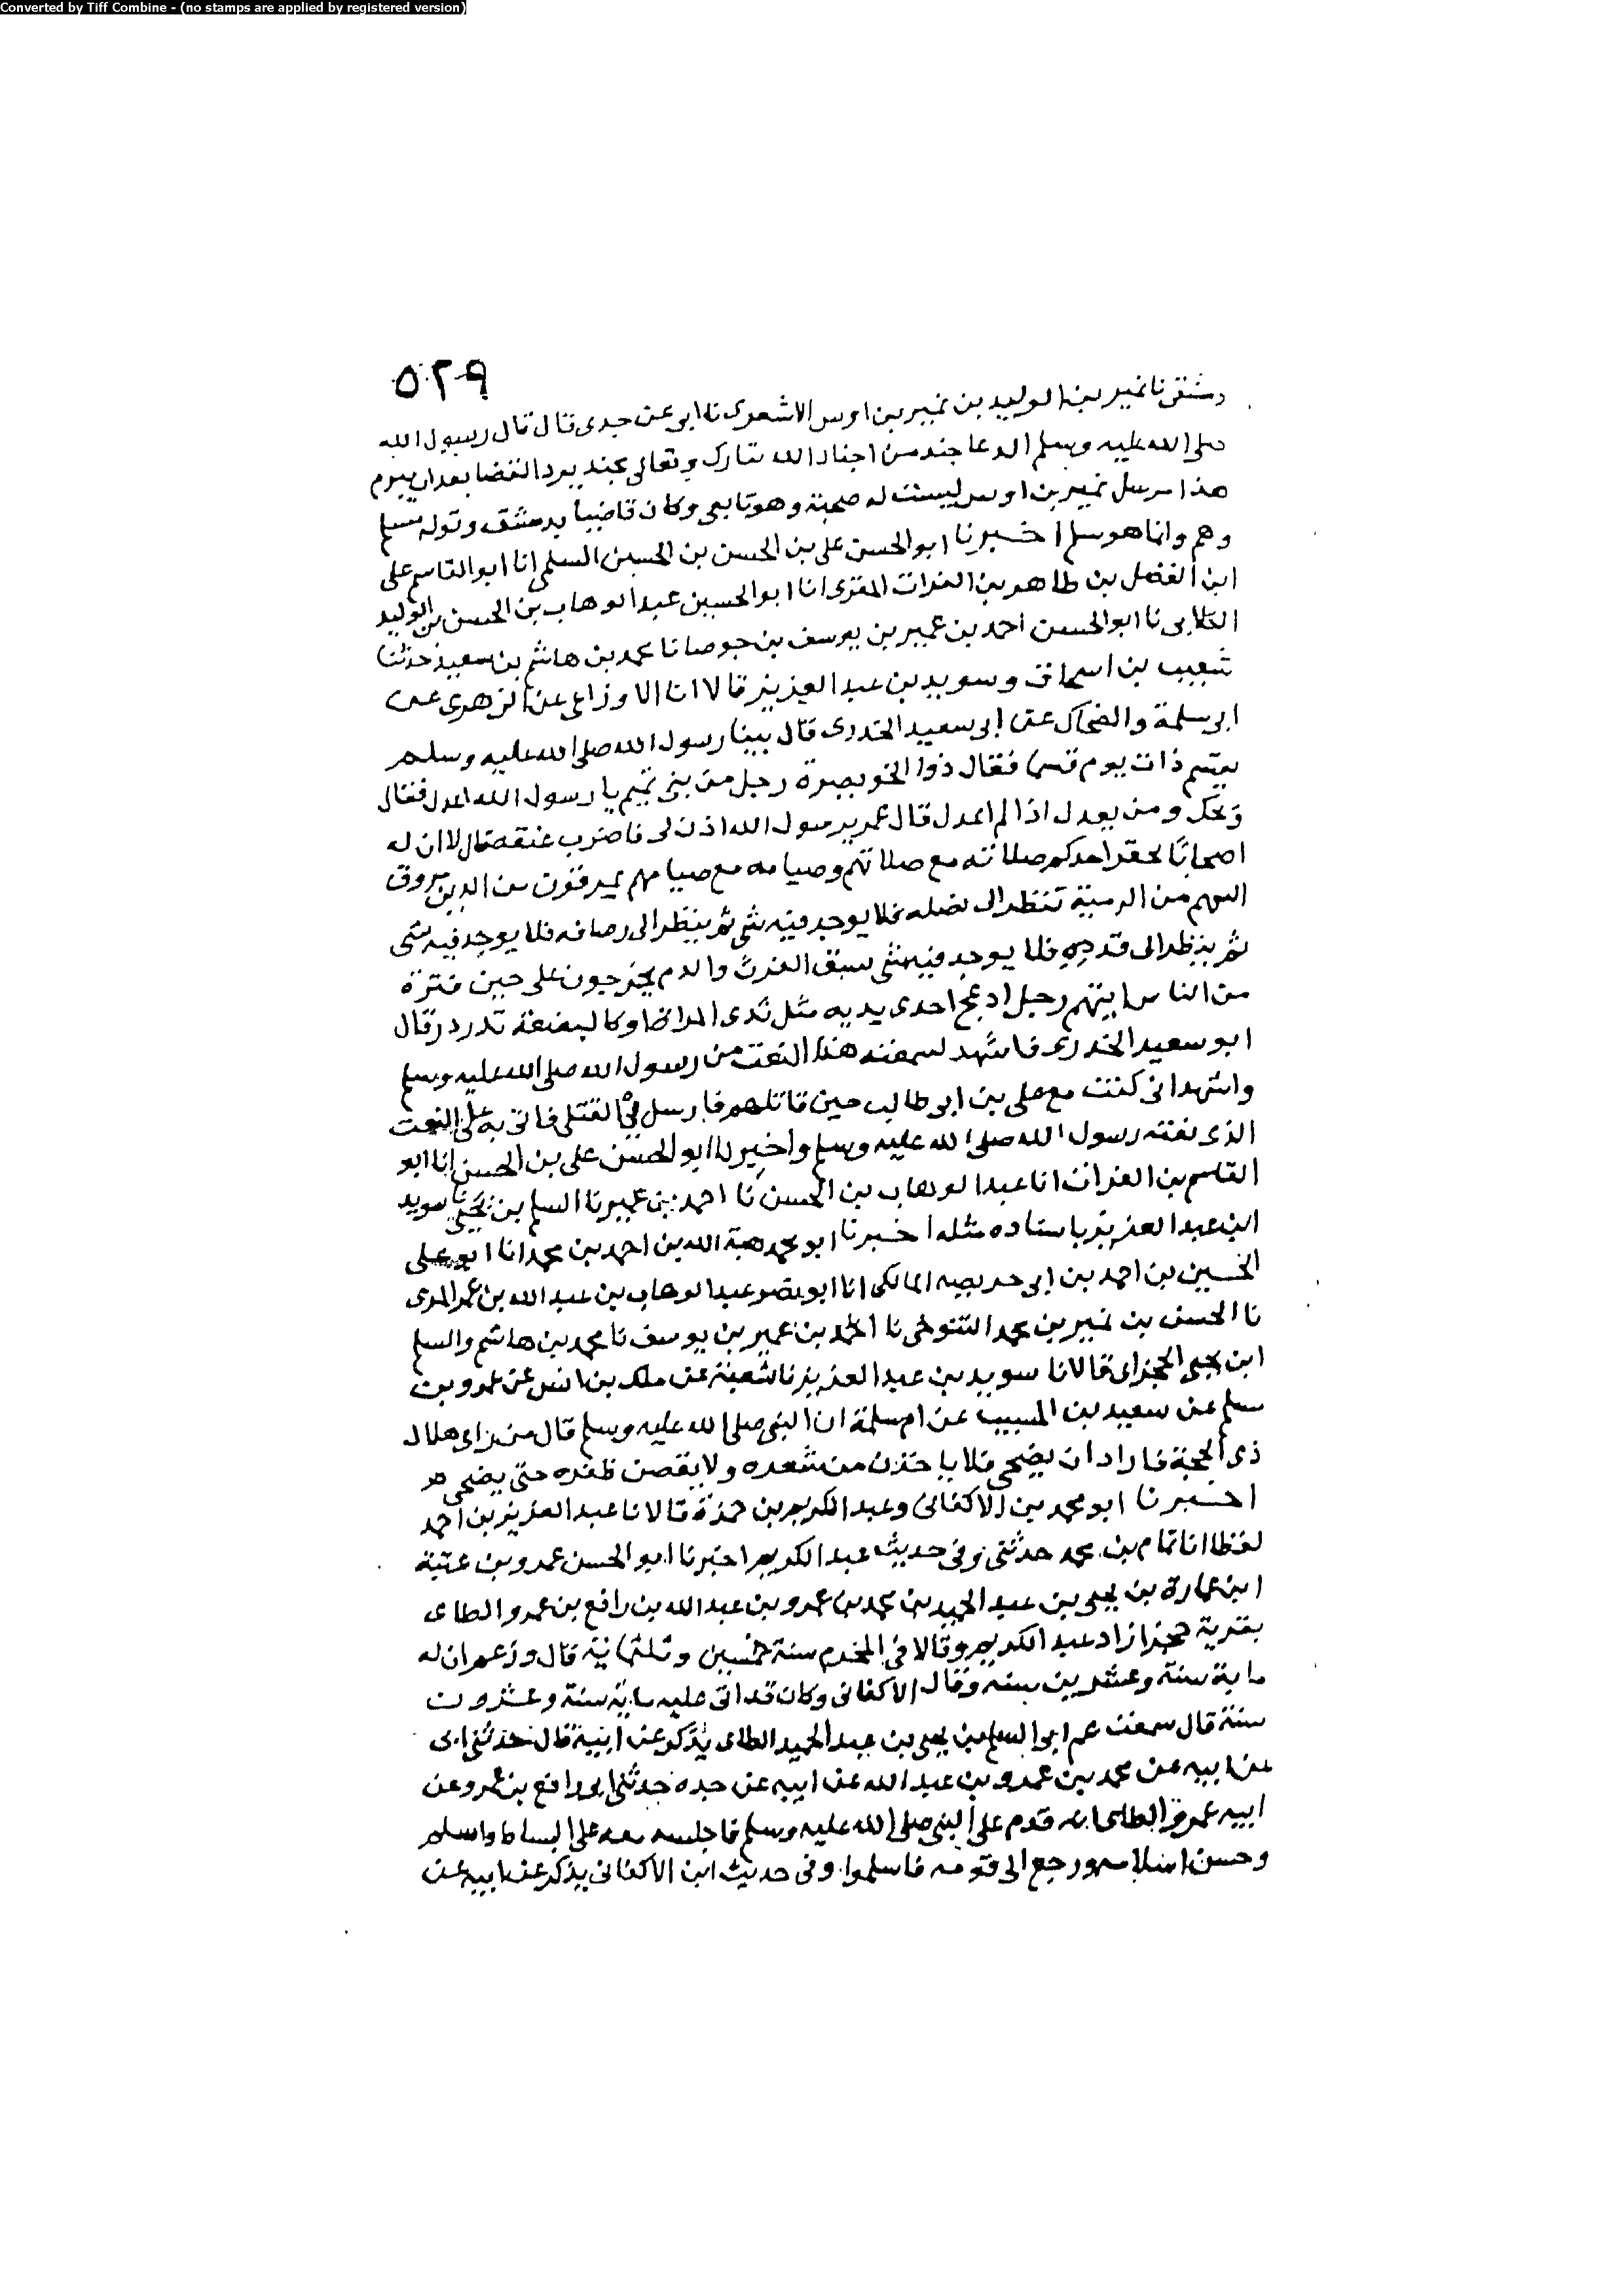 Converted by Tiff Combine - (no stamps are applied by registered version)
٥٢٩
دمشق نا نمير بن الوليد بن نمير بن اوس الاشعرى نا ابى عن جدى قال قال رسول الله
صلى الله عليه وسلم الدعا جند من اجناد الله تبارك وتعالى مجند يرد القضا بعد ان يبرم
هذا مرسل نمير بن اوس ليست له صحبة وهو تابعى وكان قاضيا بدمشق وقوله مسلم
وهم وانما هو سلم اخبرنا ابو الحسن على بن الحسن بن الحسين السلمى انا ابو القاسم على
ابن الفضل بن طاهر بن الفرات المقرى انا ابو الحسين عبد الوهاب بن الحسن بن الوليد
الكلابى نا ابو الحسن احمد بن عمير بن يوسف بن جوصا نا محمد بن هاشم بن سعيد حدثنا
شعيب بن اسحاق وسويد بن عبد العزيز قالا انا الاوزاعى عن الزهرى عن
ابى سلمة والضحاك عن ابى سعيد الخدرى قال بينا رسول الله صلى الله عليه وسلم
يقسم ذات يوم قسما فقال ذوا الخويصرة رجل من بنى تميم يا رسول الله اعدل فقال
ويحك ومن يعدل اذا لم اعدل قال عمر يرسول الله اذن لى فاضرب عنقه قال لا ان له
اصحابا يحقر احدكم صلاته مع صلاتهم وصيامه مع صيامهم يمرقون من الدين مروق
السهم من الرمية تنظر الى نصله فلا يوجد فيه شى ثم ينظر الى رصافه فلا يوجد فيه شى
ثم ينظر الى قدحه فلا يوجد فيه شى سبق الفرث والدم يخرجون على حين فترة
من الناس ايتهم رجل ادعج احدى يديه مثل ثدى المراة او كالبضعة تدردر قال
ابو سعيد الخدرى فاشهد لسمعته هذا النعت من رسول الله صلى الله عليه وسلم
واشهد انى كنت مع على بن ابى طالب حين قاتلهم فارسل فى القتلى فاتى به على النعت
الذى نعته رسول الله صلى الله عليه وسلم واخبرنا ابو الحسن على بن الحسن انا ابو
القاسم بن الفرات انا عبد الوهاب بن الحسن نا احمد بن عمير نا السلم بن يحيى نا سويد
ابن عبد العزيز باسناده مثله اخبرنا ابو محمد هبة الله بن احمد بن محمد انا ابو على
الحسين بن احمد بن ابى حريصه المالكى انا ابو نصر عبد الوهاب بن عبد الله بن عمر المرى
نا الحسن بن نمير بن محمد التنوخى نا احمد بن عمير بن يوسف نا محمد بن هاشم والسلم
ابن يحيى الحجراى قالا نا سويد بن عبد العزيز نا شعبة عن ملك بن انس عن عمرو بن
سلم عن سعيد بن المسيب عن ام سلمة ان النبى صلى الله عليه وسلم قال من راى هلال
ذى الحجة فاراد ان يضحى فلا ياخذن من شعره ولا يقصن ظفره حتى يضحى هر
اخبرنا ابو محمد بن الاكفانى وعبد الكريم بن حمزة قالا نا عبد العزيز بن احمد
لفظا انا تمام بن محمد حدثنى وفى حديث عبد الكريم اخبرنا ابو الحسن عمرو بن عتبة
ابن عمارة بن يحيى بن عبد الحميد بن محمد بن عمرو بن عبد الله بن رافع بن عمرو الطاى
بقرية حجرا زاد عبد الكريم وقالا فى المحرم سنة خمسين وثلثماية قال وزعم ان له
ماية سنة وعشرين سنه وقال الاكفانى وكان قد اتى عليه ماية سنة وعشرون
سنة قال سمعت عم ابى السلم بن يحيى بن عبد الحميد الطاى يذكر عن ابية قال حدثنى ابى
عن ابيه عن محمد بن عمرو بن عبد الله عن ابيه عن جده حدثنى ابى رافع بن عمرو عن
ابيه عمرو الطاى انه قدم على النبى صلى الله عليه وسلم فاجلسه معه على البساط واسلم
وحسن اسلامه ورجع الى قومه فاسلموا وفى حديث ابن الاكفانى يذكر عن ابيه عن